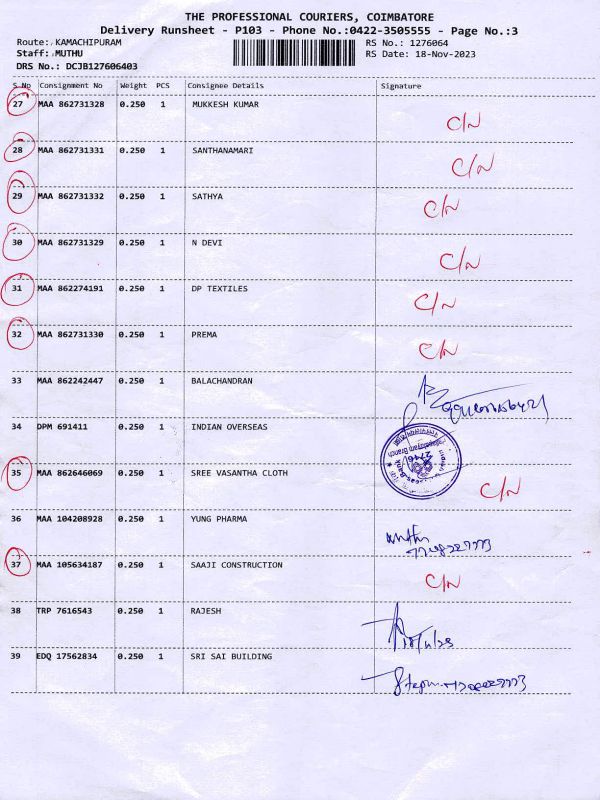 THE PROFESSIONAL COURIERS, COIMBATORE
Delivery Runsheet - P103 - Phone No.:0422-3505555 - Page No.:3
Route: KAMACHIPURAM
RS No.: 1276064
Staff: MUTHU
RS Date: 18-Nov-2023
DRS No.: DCJB127606403
S No Consignment No Weight PCS Consignee Details Signature
27 MAA 862731328 0.250 1 MUKKESH KUMAR C/N
28 MAA 862731331 0.250 1 SANTHANAMARI C/N
29 MAA 862731332 0.250 1 SATHYA C/N
30 MAA 862731329 0.250 1 N DEVI C/N
31 MAA 862274191 0.250 1 DP TEXTILES C/N
32 MAA 862731330 0.250 1 PREMA C/N
33 MAA 862242447 0.250 1 BALACHANDRAN
34 DPM 691411 0.250 1 INDIAN OVERSEAS
2746
35 MAA 862646069 0.250 1 SREE VASANTHA CLOTH C/N
36 MAA 104208928 0.250 1 YUNG PHARMA
37 MAA 105634187 0.250 1 SAAJI CONSTRUCTION C/N
38 TRP 7616543 0.250 1 RAJESH 18/11/23
39 EDQ 17562834 0.250 1 SRI SAI BUILDING